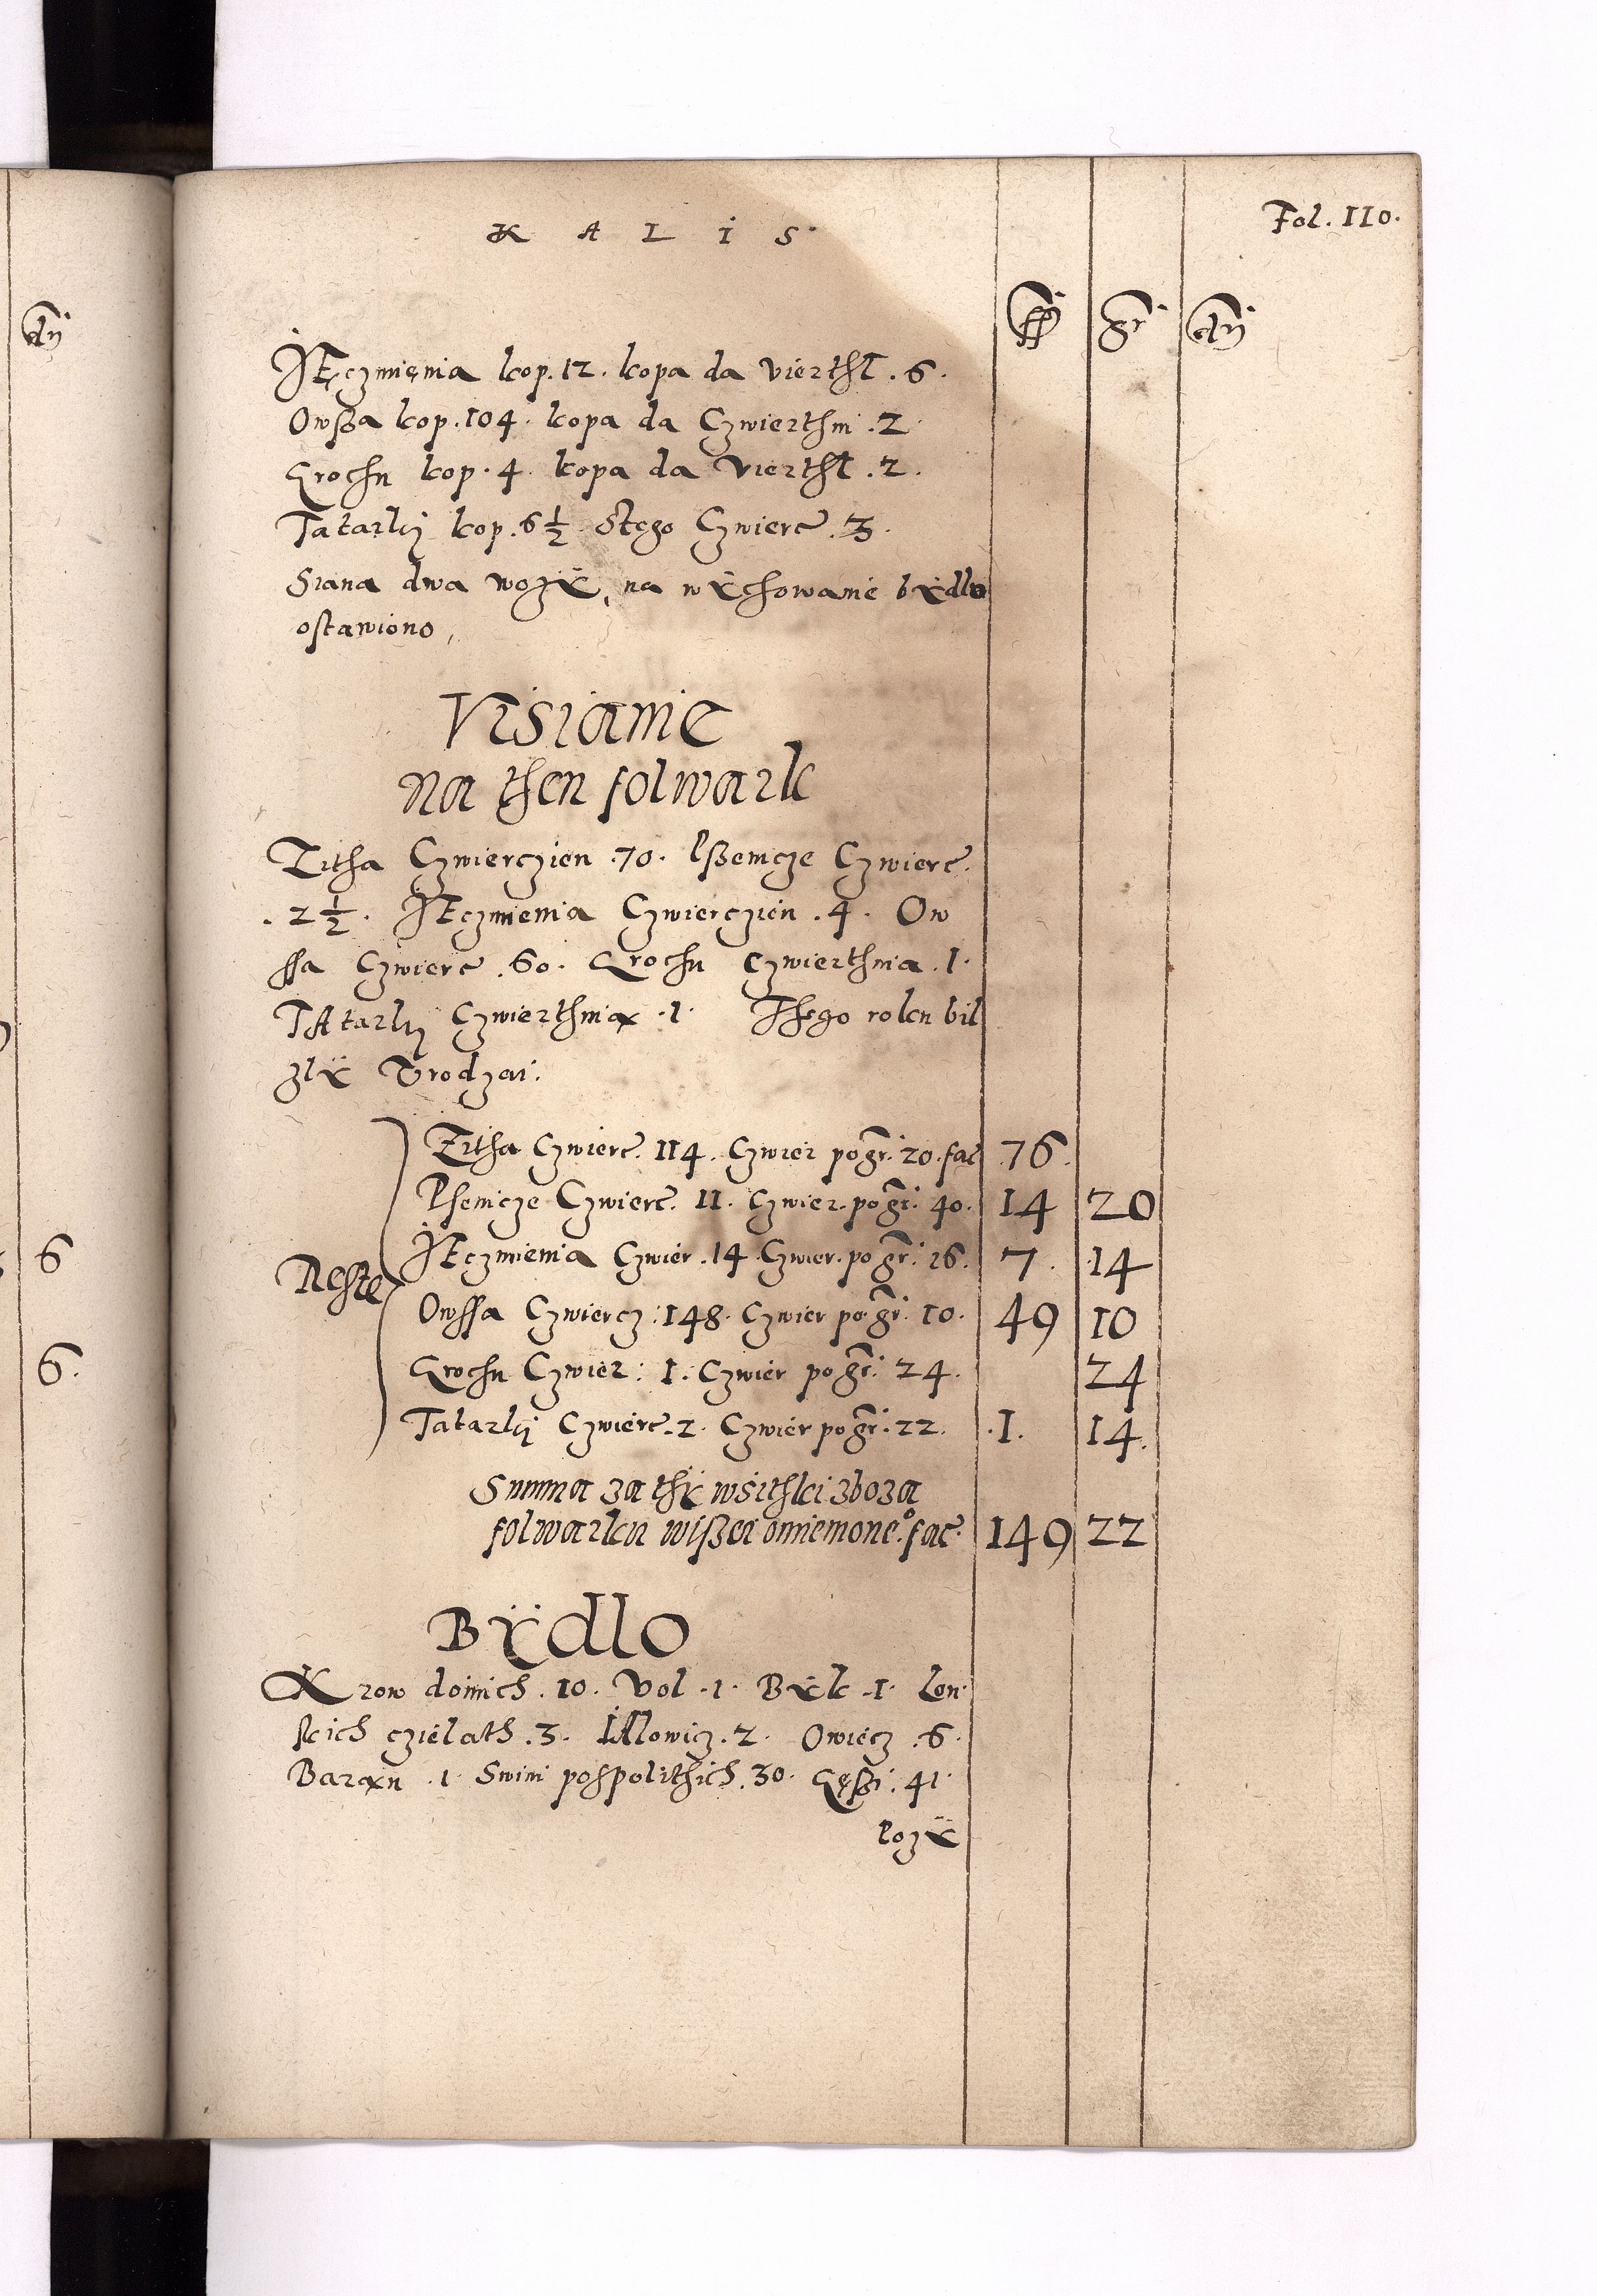 K A L I S
Fol. 110.
ff gr dn
dn
JĘczmięnia kop. 12. kopa da vierthl. 6.
Owßa kop. 104. kopa da Czwierthni. 2
Grochu kop. 4. kopa da vierthl. 2.
Tatarki kop. 6 ½ Stego Czwierc. 3.
Siana dwa wozÿ, na wÿchowanie bÿdla
ostawiono,
Visianie
na then folwark
Zitha Czwierczien 70. Pßenicze Czwierc.
. 2 ½. JEczmienia Czwierczien . 4. Ow
ssa Czwierc 60. Grochu Czwierthnia . 1.
TAtarki Czwierthnia . 1. Thego roku bil
zlÿ Vrodzai.
Reste
Zitha Czwierc. 114. Czwier po gr. 20. fac 76.
Psenicze Czwierc. 11. Czwier. po gr. 40. 14 20
JEczmienia Czwier. 14 Czwier. po gr. 16. 7. 14
Owssa Czwiercz. 148. Czwier po gr. 10. 49 10
Grochu Czwier. 1. Czwier po gr. 24. 24
Tatarki Czwierc. 2. Czwier po gr. 22. .1. 14.
Summa za thÿ wsithki zboza
folwarku wißei omiemone.° fac. 149 22
Bÿdlo
Krow doinich . 10. Vol . 1. Bÿk . 1. Lon
skich czielath . 3. Jllowicz . 2. Owiecz . 6.
Baran . 1 Swini pospolithich . 30. Gęßi . 41
lozÿ
6
6.